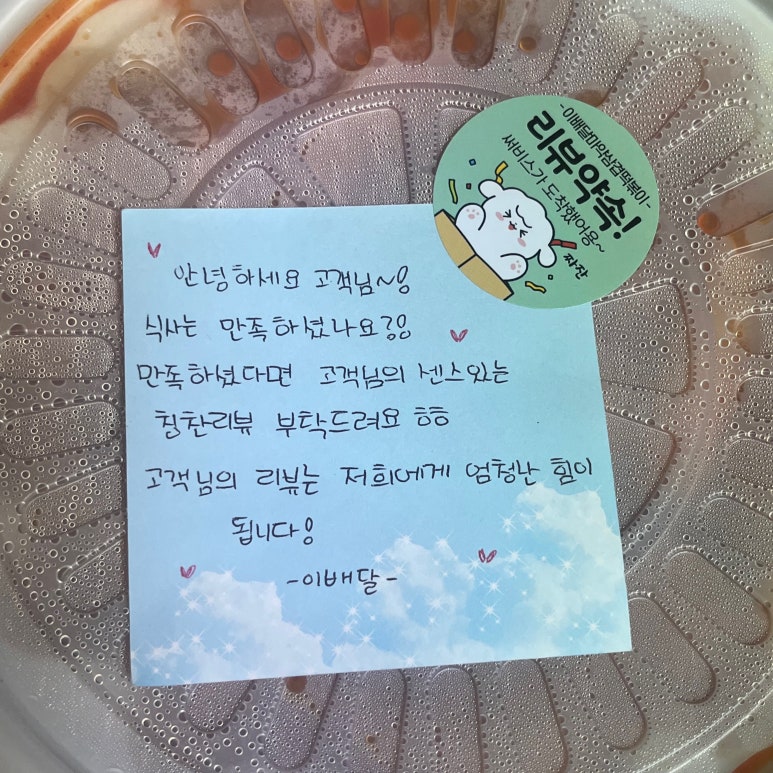 -이배달마약삼겹떡볶이-
리뷰약속!
써비스가 도착했어용~
짜잔
안녕하세요 고객님~!
식사는 만족하셨나요?!
만족하셨다면 고객님의 센스있는
칭찬리뷰 부탁드려요 ㅎㅎ
고객님의 리뷰는 저희에게 엄청난 힘이
됩니다!
-이배달-